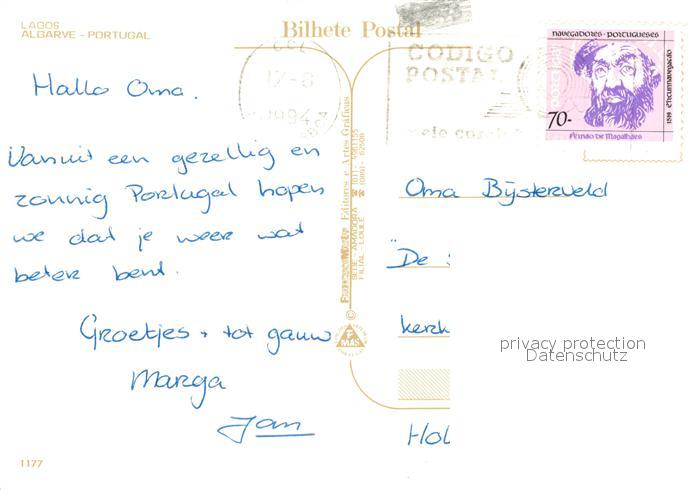 LAGOS
ALGARVE - PORTUGAL
Bilhete Postal
Hallo Oma.
Vanuit een gezellig en
zonnig Portugal hopen
we dat je weer wat
beter bent.
Groetjes + tot gauw
Marga
Jan
1177
17-8
1994
CODIGO
POSTAL
NAVEGADORES - PORTUGUESES
70-
FERNÃO DE MAGALHÃES
Editores e Artes Gráficas
SEDE - AMADORA
FILIAL - LOULÉ
Oma Bijsterveld
"De
kerk
Hol
privacy protection
Datenschutz